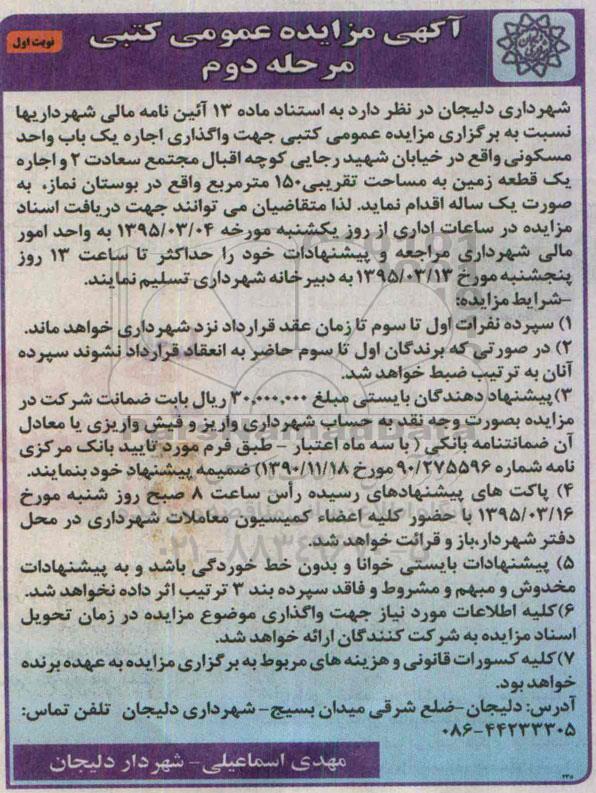 آگهی مزایده عمومی کتبی
مرحله دوم
نوبت اول
شهرداری دلیجان در نظر دارد به استناد ماده ۱۳ آئین نامه مالی شهرداریها
نسبت به برگزاری مزایده عمومی کتبی جهت واگذاری اجاره یک باب واحد
مسکونی واقع در خیابان شهید رجایی کوچه اقبال مجتمع سعادت ۲ و اجاره
یک قطعه زمین به مساحت تقریبی۱۵۰ مترمربع واقع در بوستان نماز، به
صورت یک ساله اقدام نماید. لذا متقاضیان می توانند جهت دریافت اسناد
مزایده در ساعات اداری از روز یکشنبه مورخه ۱۳۹۵/۰۳/۰۴ به واحد امور
مالی شهرداری مراجعه و پیشنهادات خود را حداکثر تا ساعت ۱۳ روز
پنجشنبه مورخ ۱۳۹۵/۰۳/۱۳ به دبیرخانه شهرداری تسلیم نمایند.
-شرایط مزایده:
۱) سپرده نفرات اول تا سوم تا زمان عقد قرارداد نزد شهرداری خواهد ماند.
۲) در صورتی که برندگان اول تا سوم حاضر به انعقاد قرارداد نشوند سپرده
آنان به ترتیب ضبط خواهد شد.
۳)پیشنهاد دهندگان بایستی مبلغ ۳۰،۰۰۰،۰۰۰ ریال بابت ضمانت شرکت در
مزایده بصورت وجه نقد به حساب شهرداری واریز و فیش واریزی یا معادل
آن ضمانتنامه بانکی ( با سه ماه اعتبار - طبق فرم مورد تایید بانک مرکزی
نامه شماره ۹۰/۲۷۵۵۹۶ مورخ ۱۳۹۰/۱۱/۱۸) ضمیمه پیشنهاد خود بنمایند.
۴) پاکت های پیشنهادهای رسیده رأس ساعت ۸ صبح روز شنبه مورخ
۱۳۹۵/۰۳/۱۶ با حضور کلیه اعضاء کمیسیون معاملات شهرداری در محل
دفتر شهردار،باز و قرائت خواهد شد.
۵) پیشنهادات بایستی خوانا و بدون خط خوردگی باشد و به پیشنهادات
مخدوش و مبهم و مشروط و فاقد سپرده بند ۳ ترتیب اثر داده نخواهد شد.
۶)کلیه اطلاعات مورد نیاز جهت واگذاری موضوع مزایده در زمان تحویل
اسناد مزایده به شرکت کنندگان ارائه خواهد شد.
۷)کلیه کسورات قانونی و هزینه های مربوط به برگزاری مزایده به عهده برنده
خواهد بود.
آدرس: دلیجان-ضلع شرقی میدان بسیج- شهرداری دلیجان تلفن تماس:
۰۸۶-۴۴۲۳۳۳۰۵
مهدی اسماعیلی- شهردار دلیجان
۰۲۱-۸۸۳۴۹۶۷۰-۵